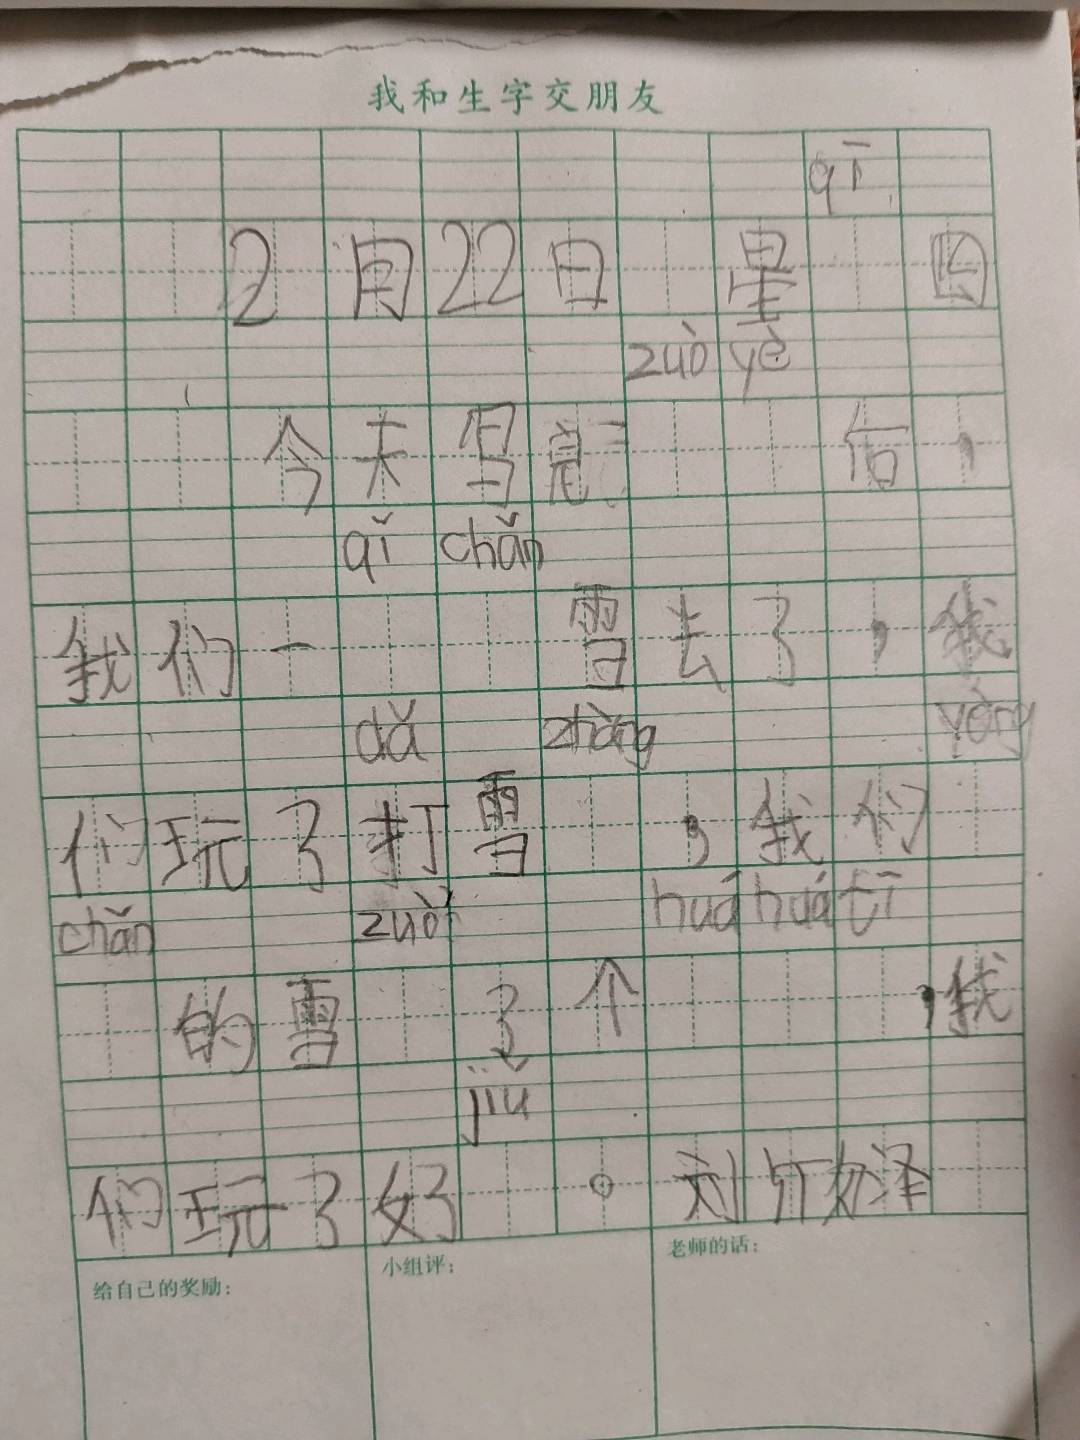 我和生字交朋友
qī
2月22日 星 四
zuò yè
今天写完 后，
qǐ chǎn
我们一 雪去了，我
dǎ zhàng yòng
们玩了打雪 ，我们
chǎn zuò huá huá tī
的雪 了个 ，我
jiǔ
们玩了好 。刘
给自己的奖励：
小组评：
老师的话：